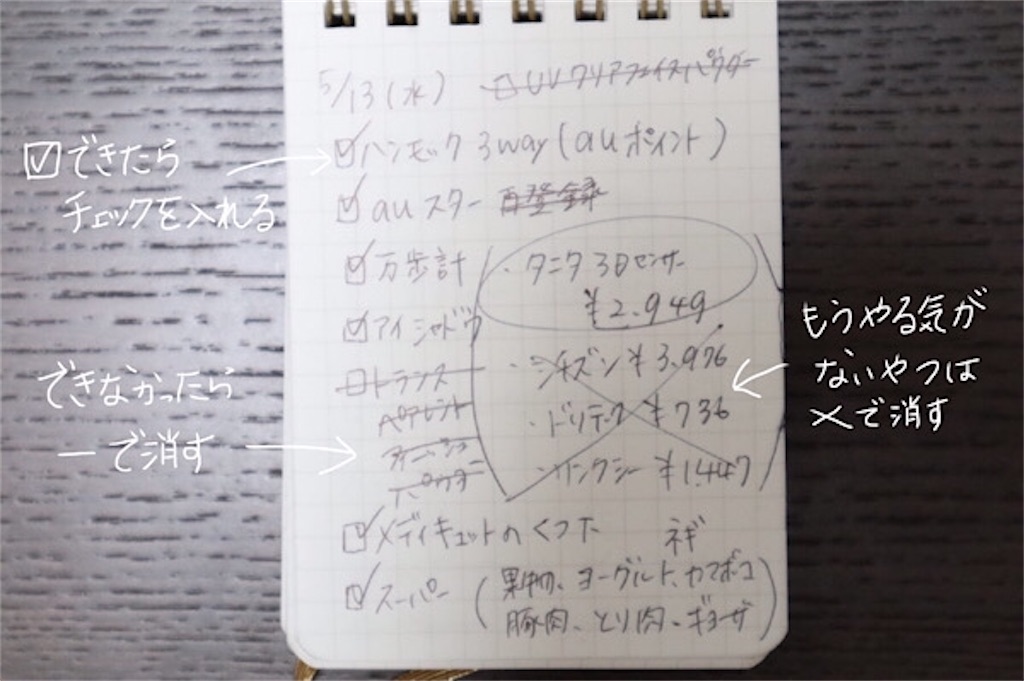 5/13(水) □UVクリアフェイスパウダー
☑ハンモック 3way(auポイント)
☑auスター 再登録
☑万歩計
・タニタ 3Dセンサー
¥2.949
☑アイシャドウ
・シチズン ¥3.976
・ドリテック ¥736
・リンクシー ¥1.447
□トランス
ペアレント
フィニッシュ
パウダー
☑メディキュットのくつ下
☑スーパー
ネギ
(果物、ヨーグルト、カマボコ
豚肉、とり肉、ギョーザ)
☑できたら
チェックを入れる
できなかったら
ーで消す
もうやる気が
ないやつは
×で消す